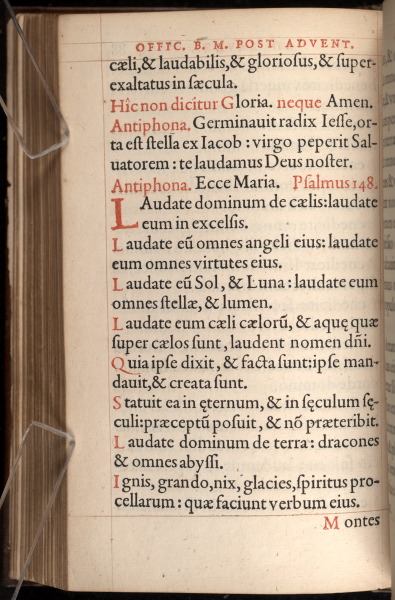 OFFIC. B. M. POST ADVENT.
cæli,& laudabilis,& gloriosus,& super-
exaltatus in sæcula.
Hîc non dicitur Gloria. neque Amen.
Antiphona. Germinauit radix Iesse,or-
ta est stella ex Iacob : virgo peperit Sal-
uatorem : te laudamus Deus noster.
Antiphona. Ecce Maria. Psalmus 148.
LAudate dominum de cælis:laudate
eum in excelsis.
Laudate eū omnes angeli eius: laudate
eum omnes virtutes eius.
Laudate eū Sol, & Luna : laudate eum
omnes stellæ, & lumen.
Laudate eum cæli cælorū, & aquę quæ
super cælos sunt, laudent nomen dñi.
Quia ipse dixit, & facta sunt:ipse man-
dauit,& creata sunt.
Statuit ea in ęternum, & in sęculum sę-
culi:præceptū posuit, & nō præteribit.
Laudate dominum de terra : dracones
& omnes abyssi.
Ignis, grando,nix, glacies,spiritus pro-
cellarum : quæ faciunt verbum eius.
Montes